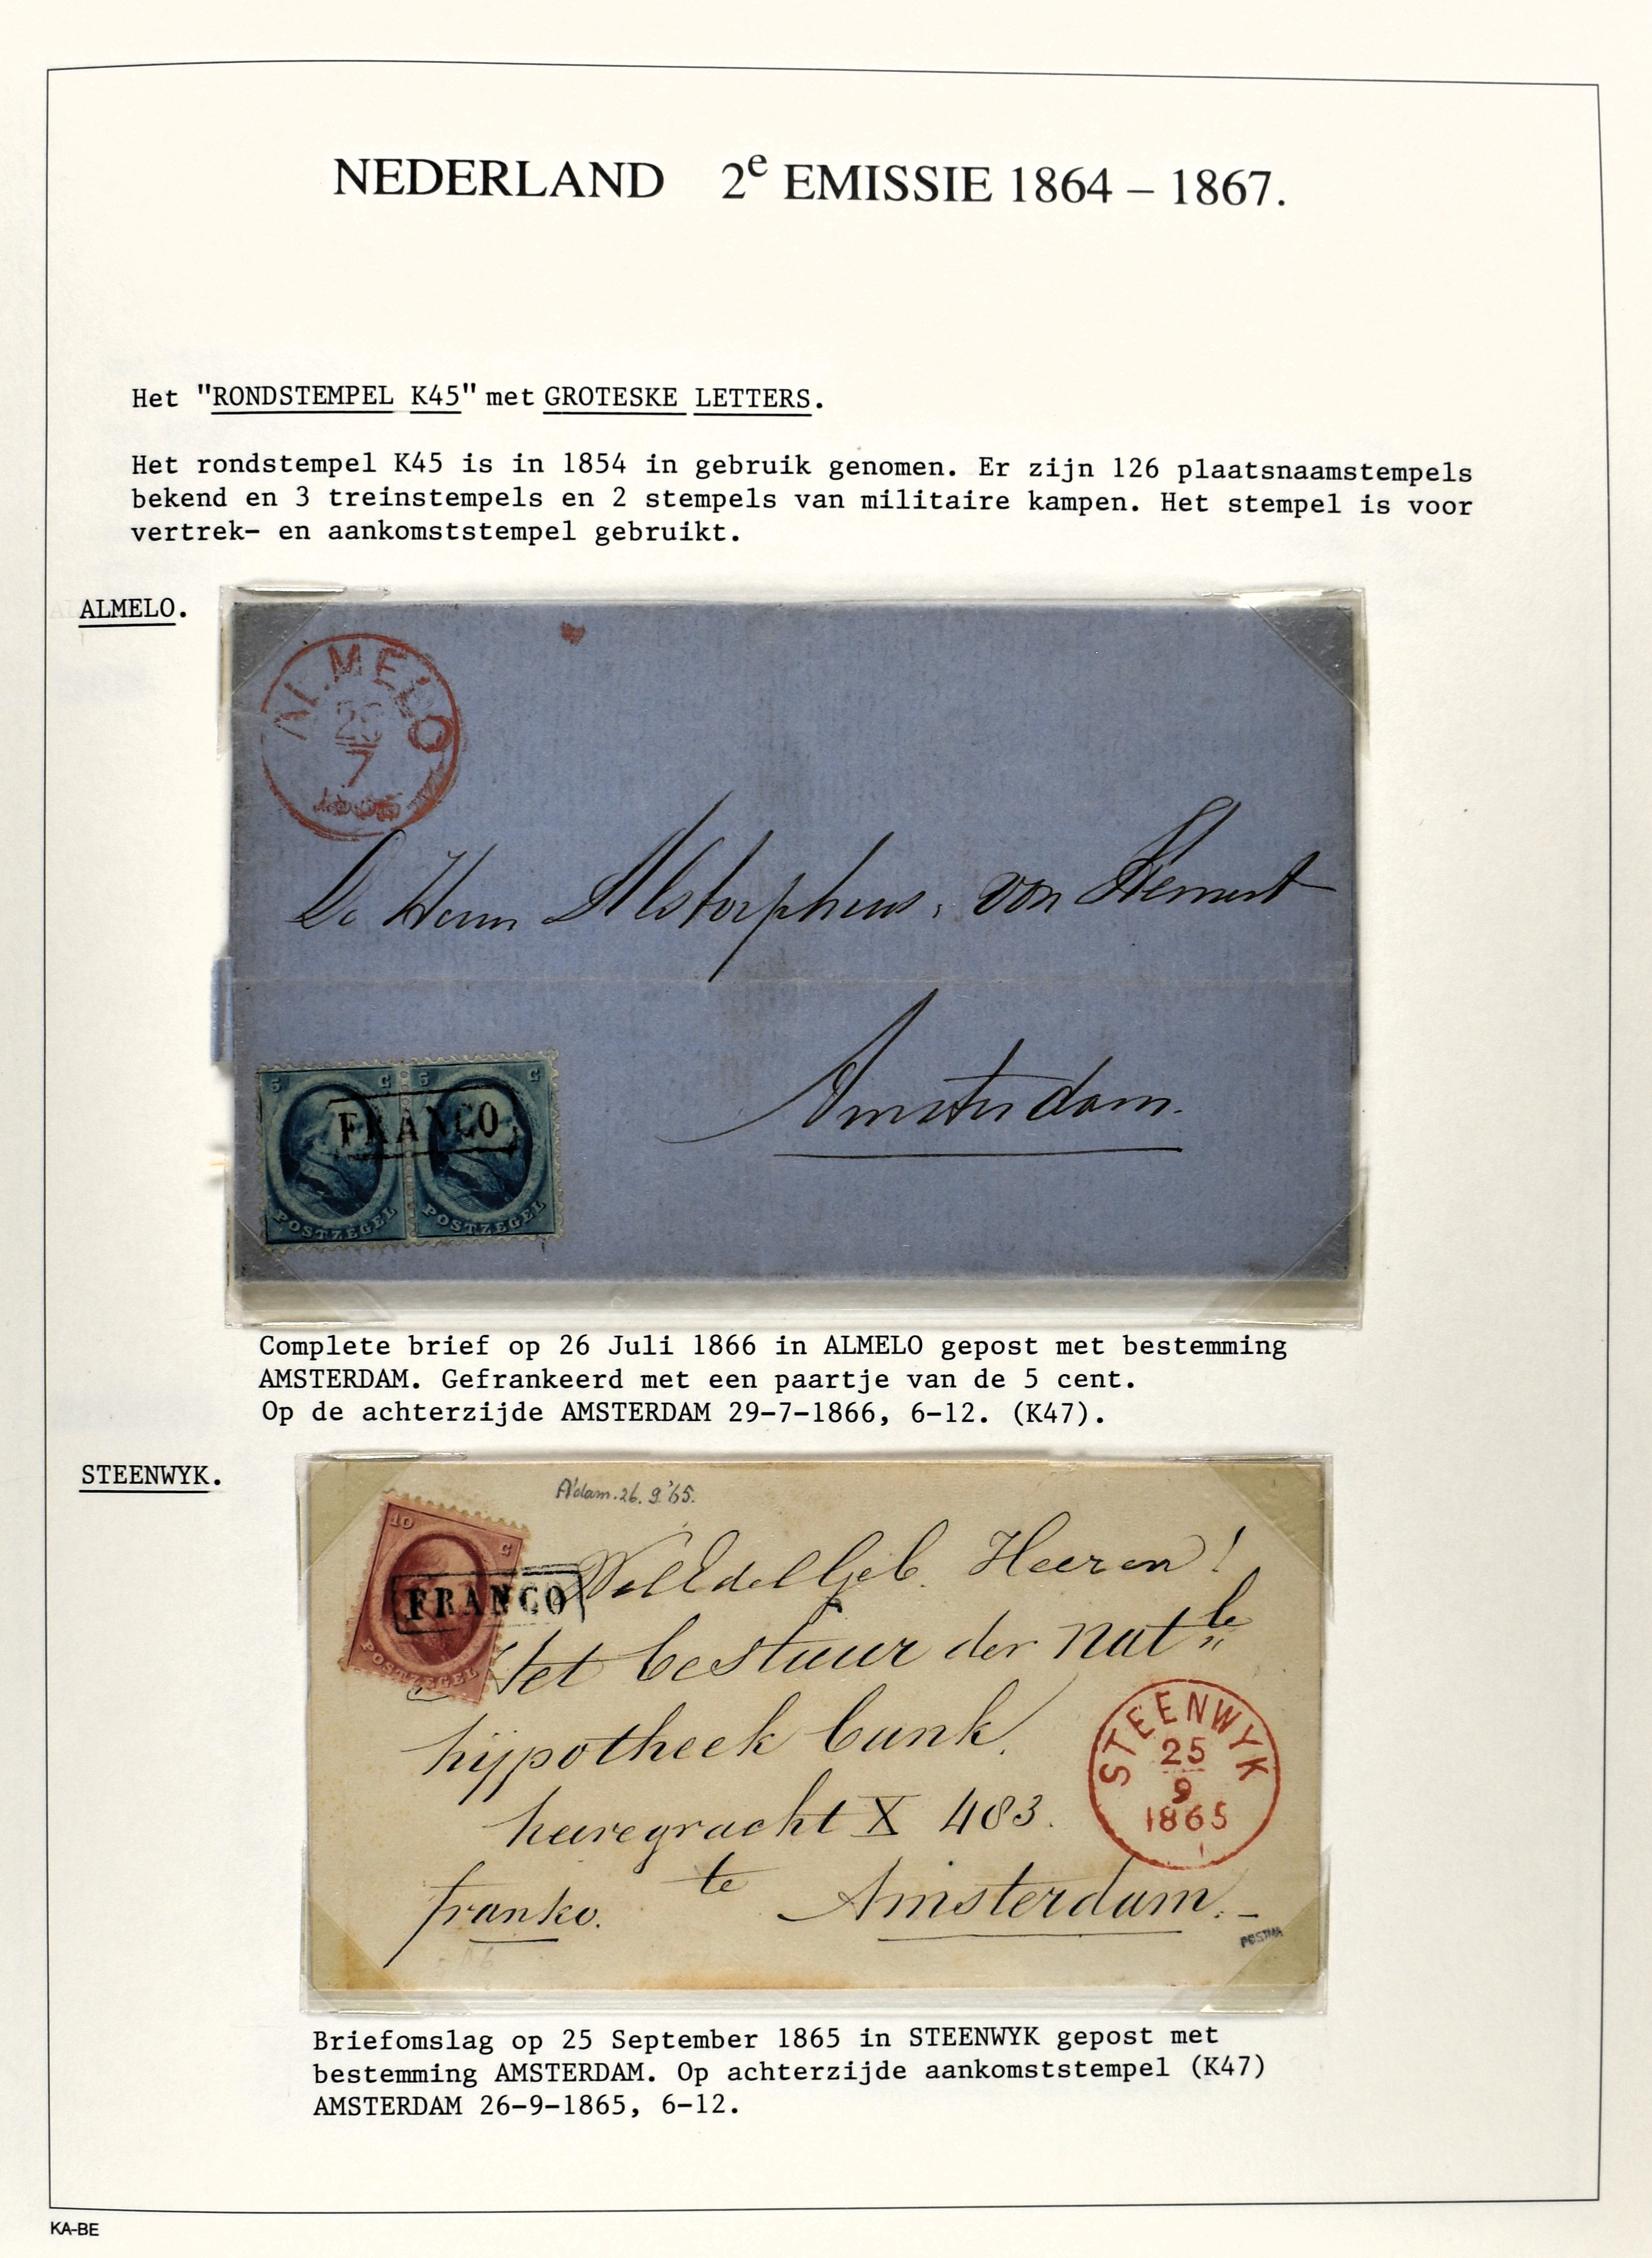 NEDERLAND 2e EMISSIE 1864 – 1867.
Het "RONDSTEMPEL K45" met GROTESKE LETTERS.
Het rondstempel K45 is in 1854 in gebruik genomen. Er zijn 126 plaatsnaamstempels
bekend en 3 treinstempels en 2 stempels van militaire kampen. Het stempel is voor
vertrek- en aankomststempel gebruikt.
ALMELO.
ALMELO
7
De Heeren Alstorphius, von Hemert
Amsterdam.
5 C 5 C
FRANCO
POSTZEGEL POSTZEGEL
Complete brief op 26 Juli 1866 in ALMELO gepost met bestemming
AMSTERDAM. Gefrankeerd met een paartje van de 5 cent.
Op de achterzijde AMSTERDAM 29-7-1866, 6-12. (K47).
STEENWYK.
A'dam. 26. 9.'65.
10 C
FRANCO
POSTZEGEL
WelEdelGeb. Heeren!
Het bestuur der Natle
hypotheek bank.
heeregracht X 483.
te Amsterdam.
franko.
STEENWYK
25
9
1865
POSTMA
Briefomslag op 25 September 1865 in STEENWYK gepost met
bestemming AMSTERDAM. Op achterzijde aankomststempel (K47)
AMSTERDAM 26-9-1865, 6-12.
KA-BE